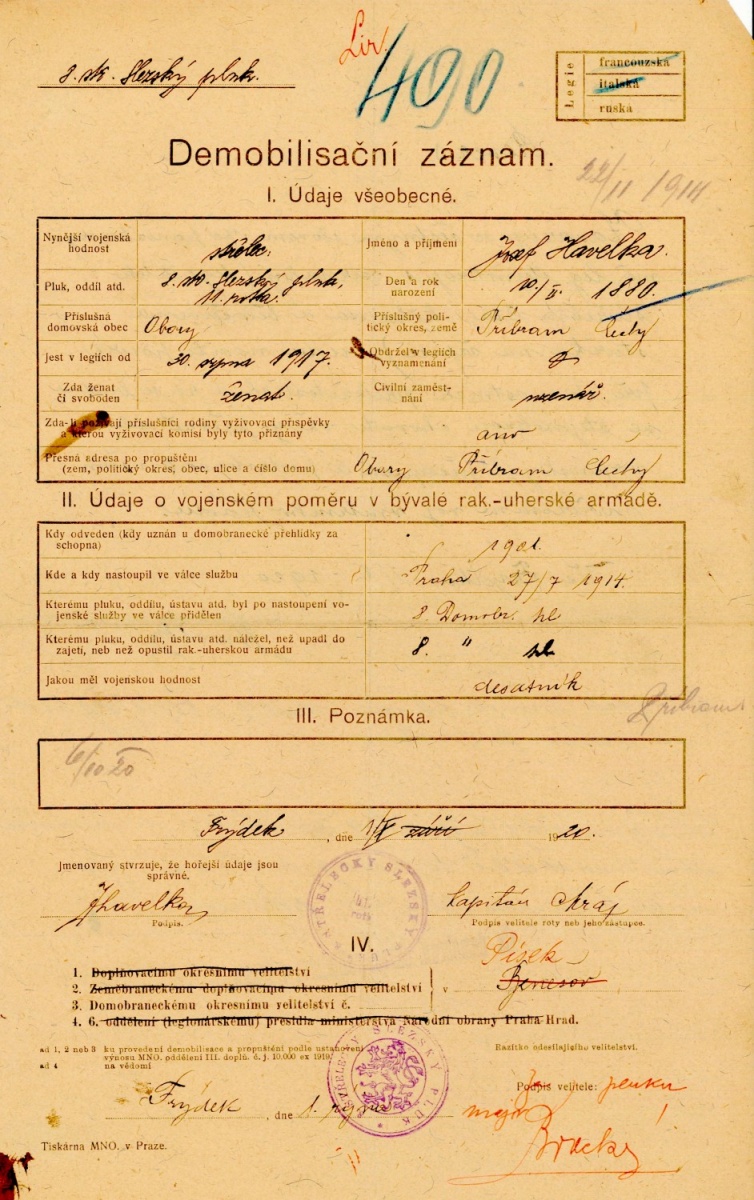 Lir.
490
8. stř. slezský pluk.
Legie
francouzská
italská
ruská
Demobilisační záznam.
22/11 1914
I. Údaje všeobecné.
Nynější vojenská hodnost
střelec.
Jméno a příjmení
Josef Havelka.
Pluk, oddíl atd.
8. stř. slezský pluk, 11. rota.
Den a rok narození
1880.
Příslušná domovská obec
Obory
Příslušný politický okres, země
Příbram Čechy
Jest v legiích od
30. srpna 1917.
Obdržel v legiích vyznamenání
Zda ženat či svoboden
ženat.
Civilní zaměstnání
uzenář.
Zda-li požívají příslušníci rodiny vyživovací příspěvky
a kterou vyživovací komisí byly tyto přiznány
ano
Přesná adresa po propuštění
(zem, politický okres, obec, ulice a číslo domu)
Obory Příbram Čechy
II. Údaje o vojenském poměru v bývalé rak.-uherské armádě.
Kdy odveden (kdy uznán u domobranecké přehlídky za
schopna)
1901.
Kde a kdy nastoupil ve válce službu
Praha 27/7 1914.
Kterému pluku, oddílu, ústavu atd. byl po nastoupení vo-
jenské služby ve válce přidělen
8 Domobr. pl
Kterému pluku, oddílu, ústavu atd. náležel, než upadl do
zajetí, neb než opustil rak.-uherskou armádu
8. " pl.
Jakou měl vojenskou hodnost
desatník
Příbram
III. Poznámka.
6/10 20
Frýdek, dne 1/X září 1920.
Jmenovaný stvrzuje, že hořejší údaje jsou
správné.
JHavelka
Podpis.
STŘELECKÝ SLEZSKÝ PLUK
kapitán Mráz
Podpis velitele roty neb jeho zástupce.
IV.
Písek
1. Doplňovacímu okresnímu velitelství
2. Zeměbraneckému doplňovacímu okresnímu velitelství
3. Domobraneckému okresnímu velitelství č.
v Benešov
4. 6. oddělení (legionářskému) presidia ministerstva Národní obrany Praha-Hrad.
ad 1, 2 neb 3 ku provedení demobilisace a propuštění podle ustanovení
výnosu MNO. oddělení III. doplň. č. j. 10.000 ex 1919.
ad 4 na vědomí
Razítko odesílajícího velitelství.
STŘELECKÝ SLEZSKÝ PLUK
Podpis velitele: pluku
Frýdek, dne 1. října
major
Tiskárna MNO. v Praze.